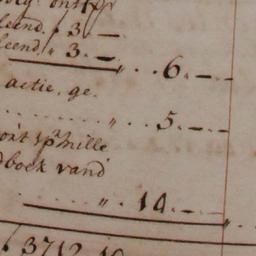 leend, " 3. —.
leend, " 3. —
" . . 6. — . —
actie, ge.
. . . . . . . . " . . . 5. — . —
ont sp. mille
dboek vand
. . . . . . . " . . 14. — . —
3712